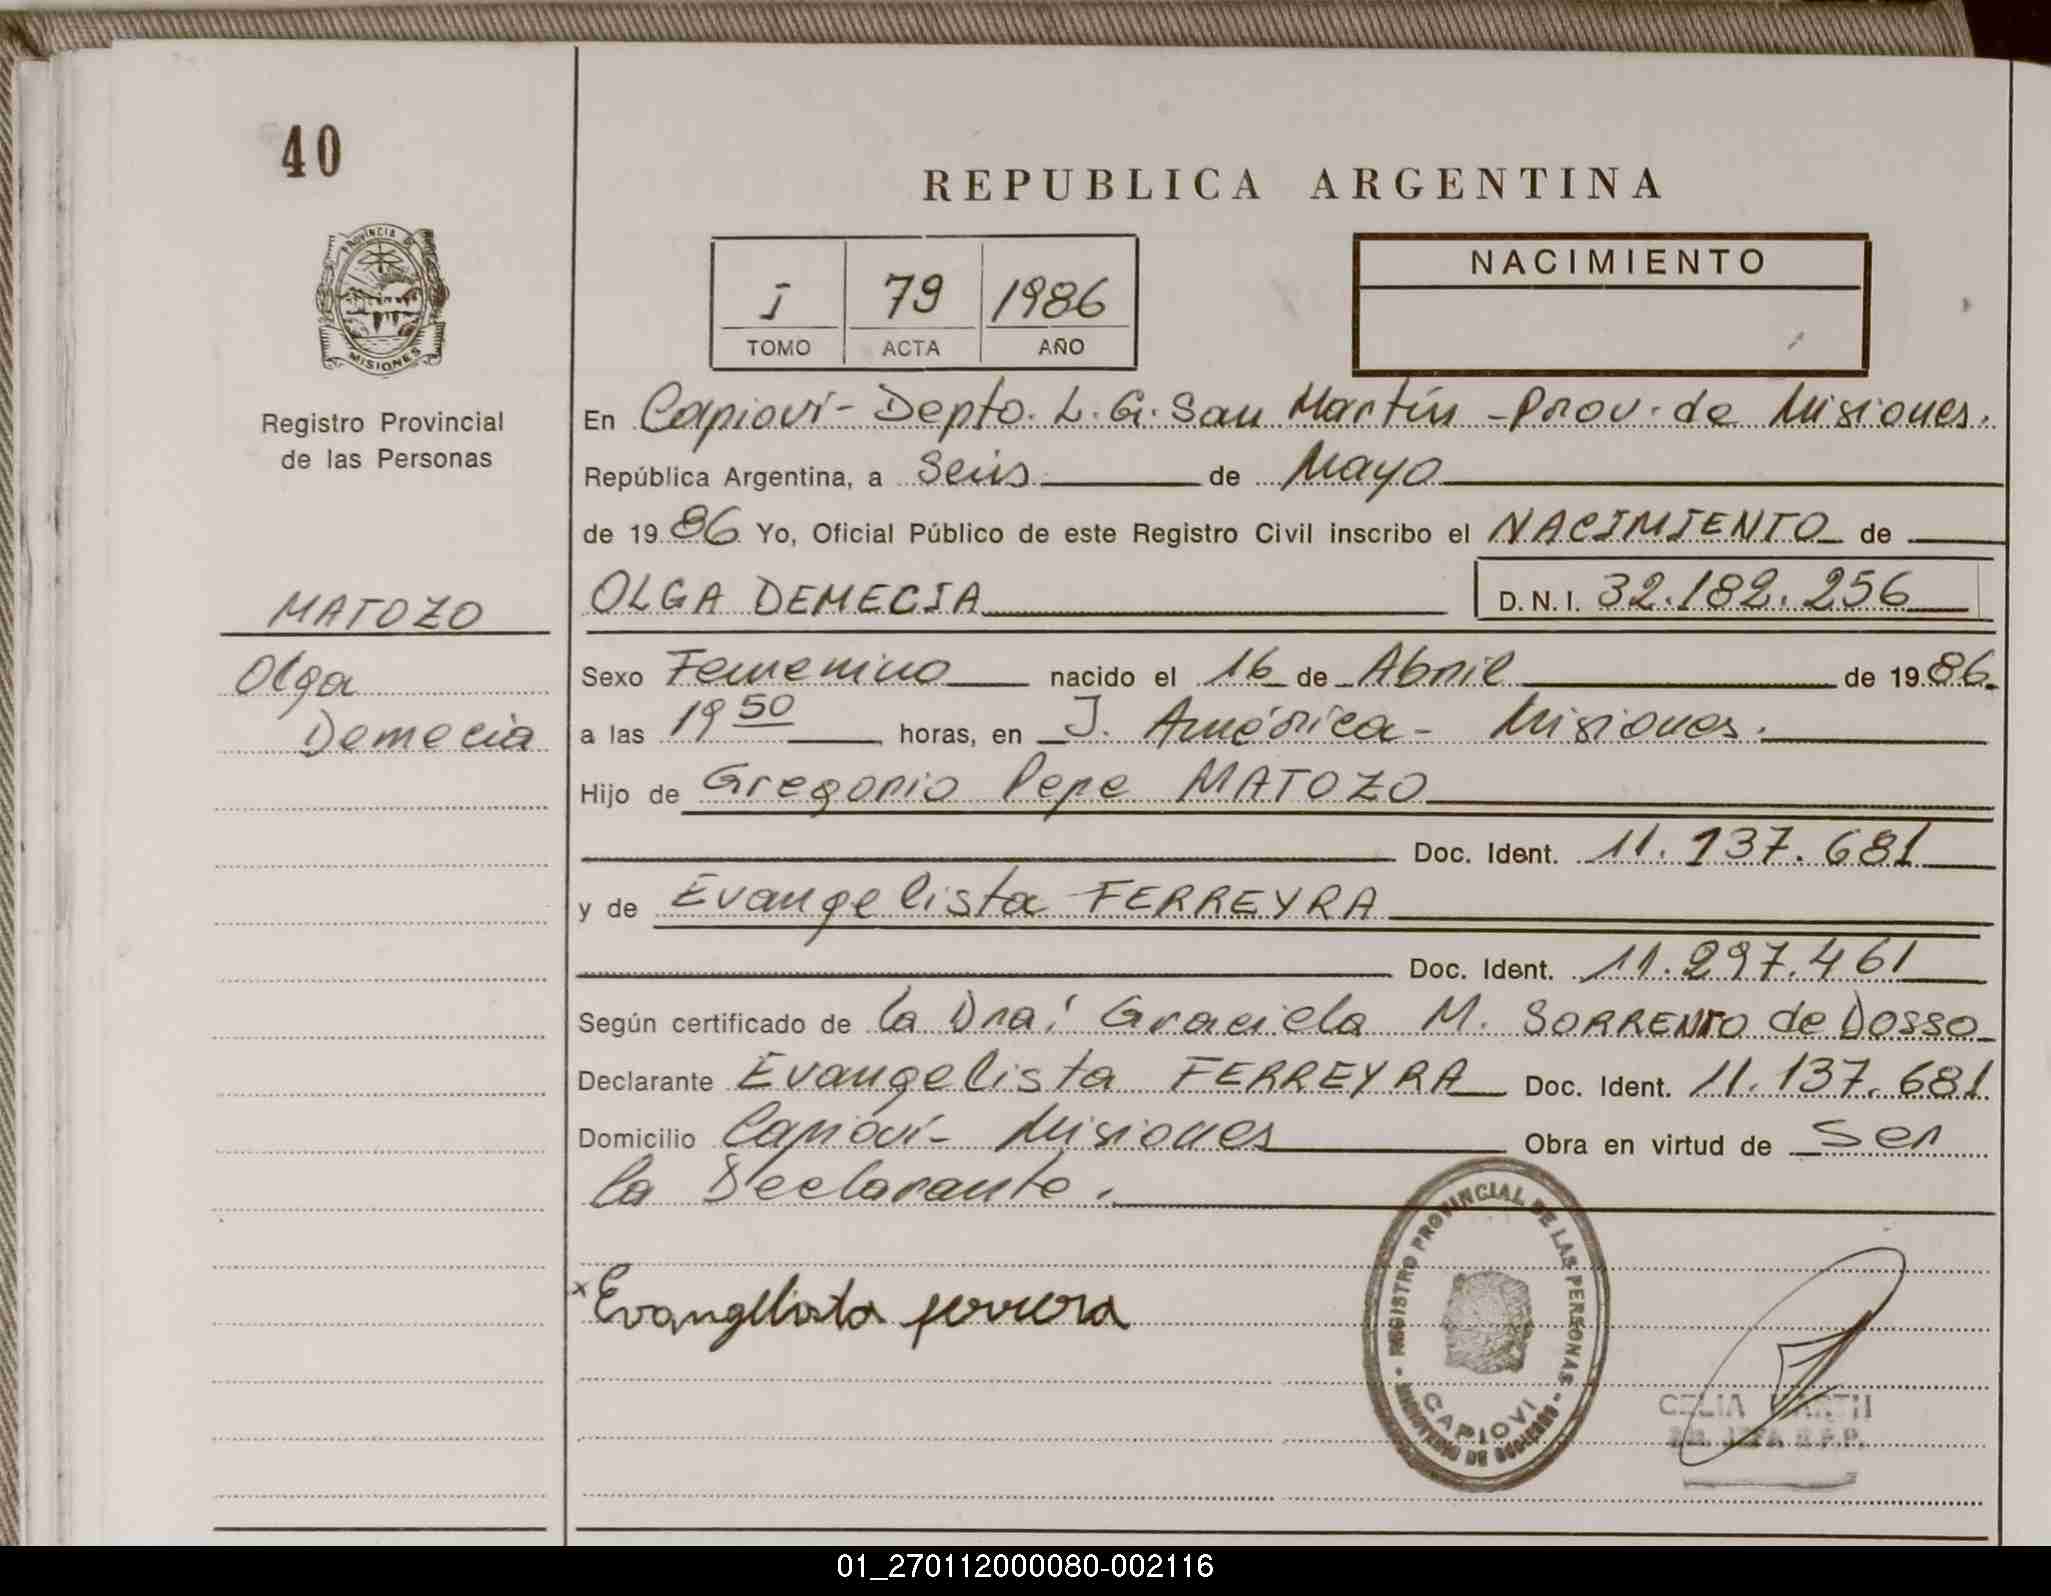 40
REPUBLICA ARGENTINA
PROVINCIA DE
MISIONES
I 79 1986
TOMO ACTA AÑO
NACIMIENTO
Registro Provincial
de las Personas
En Capioví - Depto. L. G. San Martín - Prov. de Misiones.
República Argentina, a Seis de Mayo
de 1986 Yo, Oficial Público de este Registro Civil inscribo el NACIMIENTO de
MATOZO
OLGA DEMECIA D.N.I. 32.182.256
Olga
Demecia
Sexo Femenino nacido el 16 de Abril de 1986
a las 19 50 horas, en J. América - Misiones.
Hijo de Gregorio Pepe MATOZO
Doc. Ident. 11.137.681
y de Evangelista FERREYRA
Doc. Ident. 11.297.461
Según certificado de la Dra: Graciela M. SORRENTO de Dosso
Declarante Evangelista FERREYRA Doc. Ident. 11.137.681
Domicilio Capioví - Misiones Obra en virtud de Ser
la Declarante.
x Evangelista ferrera
REGISTRO PROVINCIAL DE LAS PERSONAS
CAPIOVI
MINISTERIO DE GOBIERNO
CELIA
JEFA R.P.P.
01_270112000080-002116